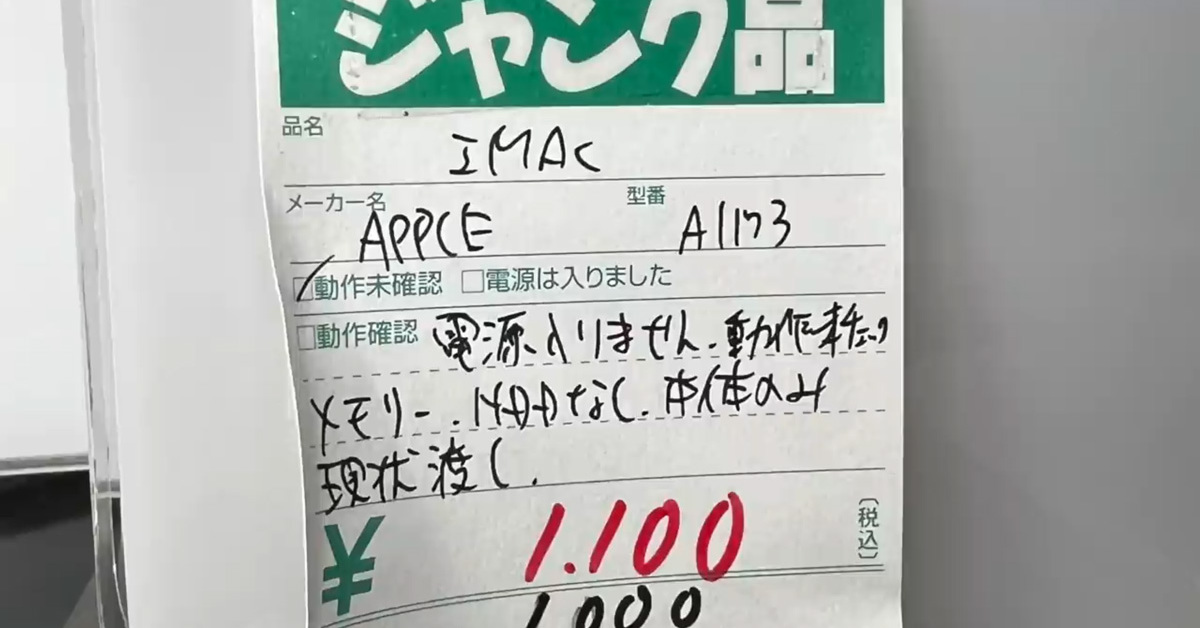 ジャンク品
品名 IMAC
メーカー名 APPLE 型番 A1173
動作未確認 電源は入りました
動作確認 電源入りません.動作未チェック
メモリー.HDDなし.本体のみ
現状渡し.
¥ 1.100 (税込)
1.000